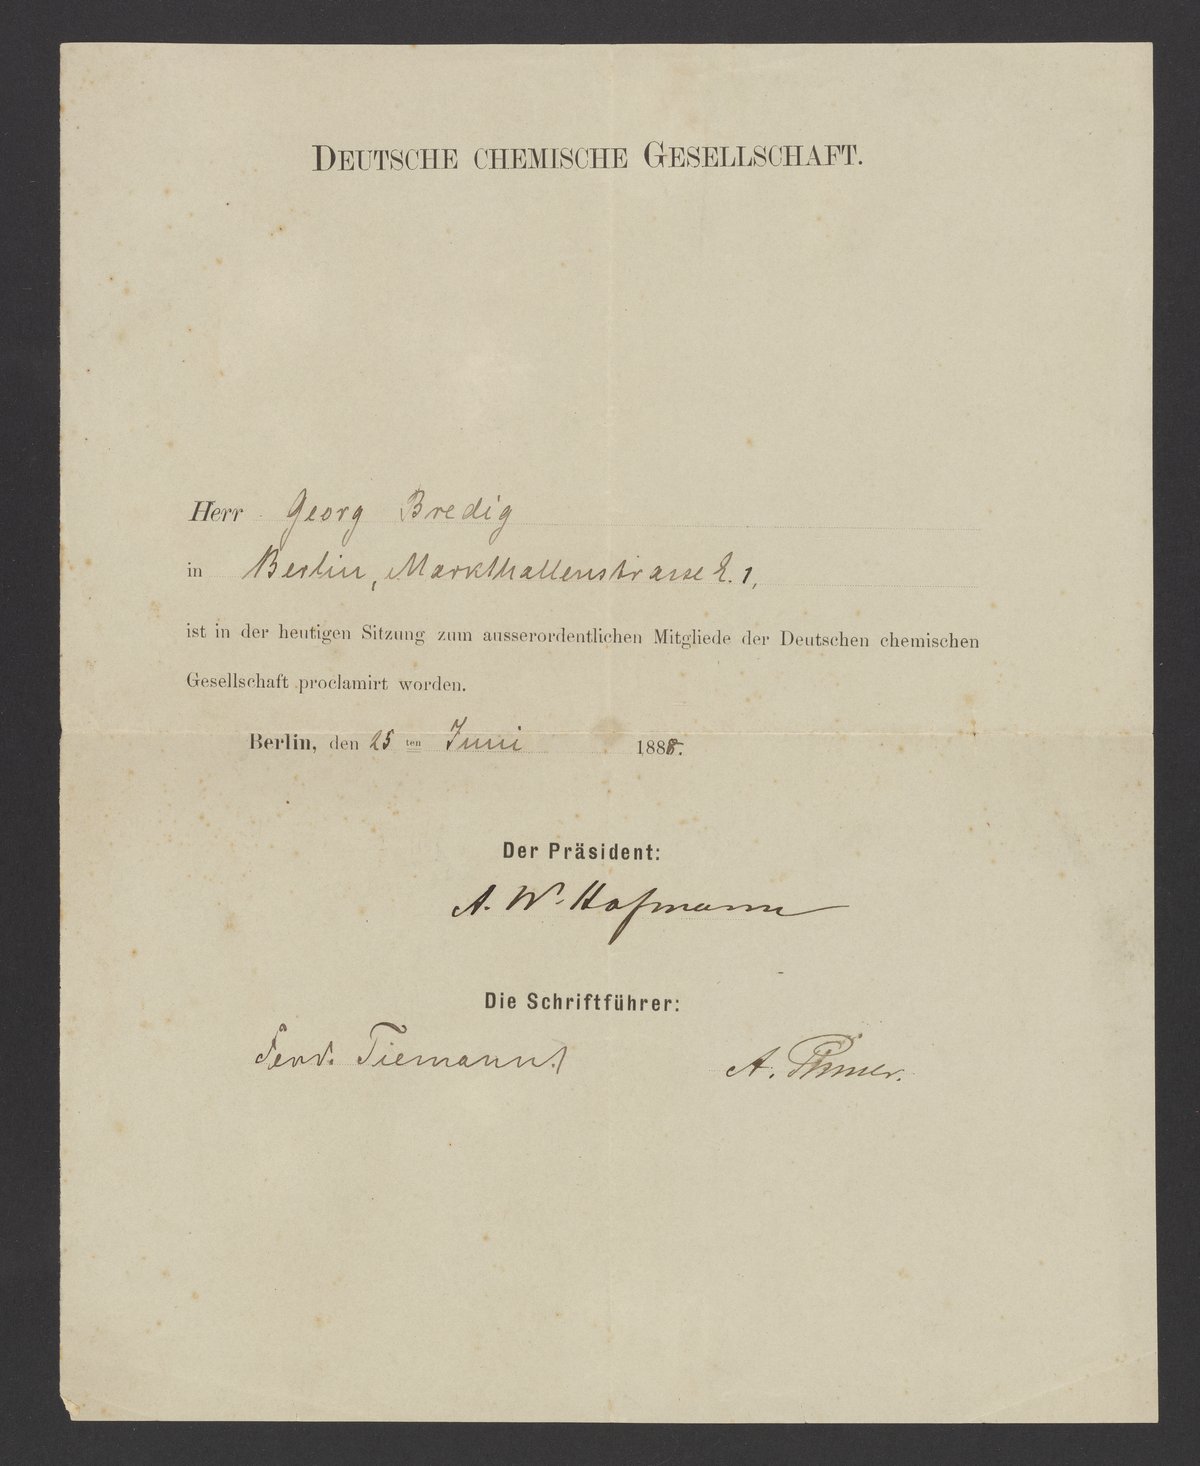 DEUTSCHE CHEMISCHE GESELLSCHAFT.
Herr Georg Bredig
in Berlin, Markthallenstrasse 2. 1,
ist in der heutigen Sitzung zum ausserordentlichen Mitgliede der Deutschen chemischen
Gesellschaft proclamirt worden.
Berlin, den 25 ten Juni 1888.
Der Präsident:
A. W. Hofmann
Die Schriftführer:
Ferd. Tiemann.
A. Pinner.